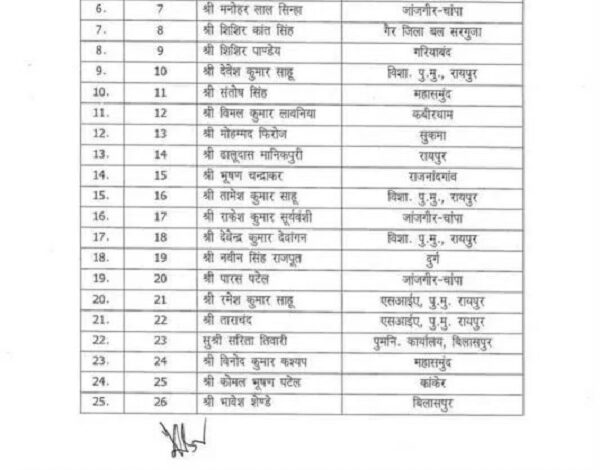 6. 7 श्री मनोहर लाल सिन्हा जांजगीर-चांपा
7. 8 श्री शिशिर कांत सिंह गैर जिला बल सरगुजा
8. 9 श्री शिशिर पाण्डेय गरियाबंद
9. 10 श्री देवेश कुमार साहू विशा. पु.मु., रायपुर
10. 11 श्री संतोष सिंह महासमुंद
11. 12 श्री विमल कुमार लावनिया कबीरधाम
12. 13 श्री मोहम्मद फिरोज सुकमा
13. 14 श्री ढालूदास मानिकपुरी रायपुर
14. 15 श्री भूषण चन्द्राकर राजनांदगांव
15. 16 श्री तामेश कुमार साहू विशा. पु.मु., रायपुर
16. 17 श्री राकेश कुमार सूर्यवंशी जांजगीर-चांपा
17. 18 श्री देवेन्द्र कुमार देवांगन विशा. पु.मु., रायपुर
18. 19 श्री नवीन सिंह राजपूत दुर्ग
19. 20 श्री पारस पटेल जांजगीर-चांपा
20. 21 श्री रमेश कुमार साहू एसआईए, पु.मु. रायपुर
21. 22 श्री ताराचंद एसआईए, पु.मु. रायपुर
22. 23 सुश्री सरिता तिवारी पुमनि. कार्यालय, बिलासपुर
23. 24 श्री विनोद कुमार कश्यप महासमुंद
24. 25 श्री कोमल भूषण पटेल कांकेर
25. 26 श्री भावेश शेण्डे बिलासपुर